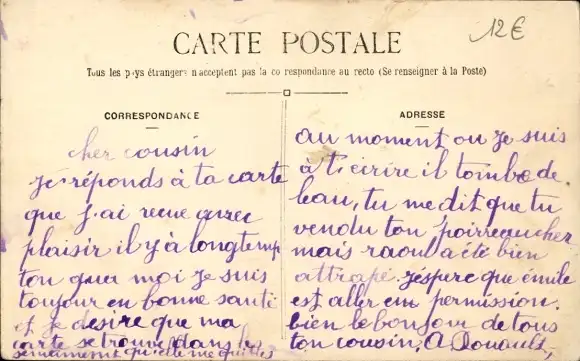 12€
CARTE POSTALE
Tous les pays étrangers n'acceptent pas la correspondance au recto (Se renseigner à la Poste)
CORRESPONDANCE
cher cousin
je réponds à ta carte
que j'ai recue avec
plaisir il y à longtemp
ton quan moi je suis
toujour en bonne santé
et je desire que ma
carte se trouve dans les
ADRESSE
au moment ou je suis
à t'écirire il tombe de
leau, tu me dit que tu
vendu ton poirreau cher
mais raoul a été bien
attrapé. jéspère que émile
est aller em permission.
bien le bonjour de tous
ton cousin, A Douault,